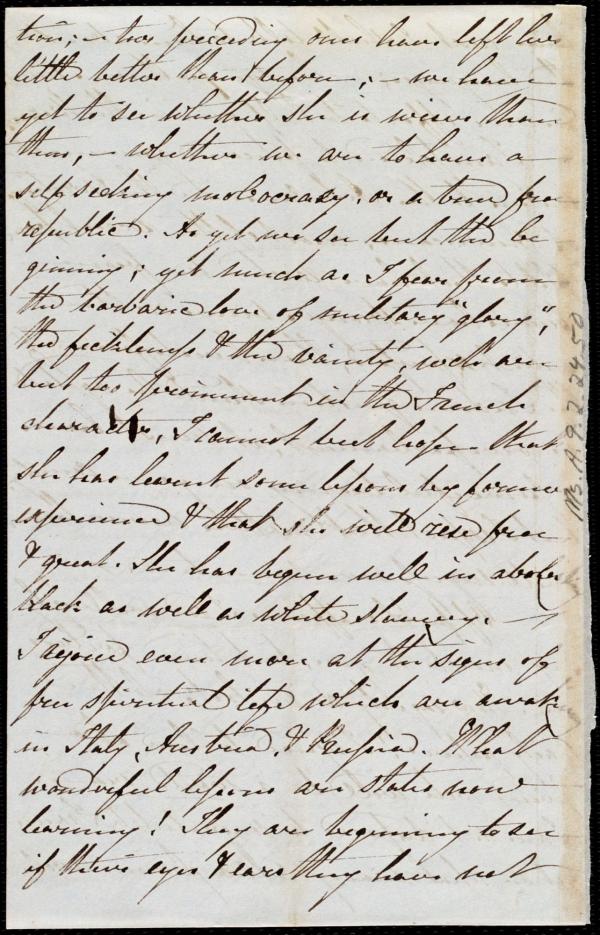 tion; – two preceding ones have left her
little better than before; – we have
yet to see whether she is wiser than
then, – whether we are to have a
self seeking mobocrasy, or a true free
republic. As yet we see but the be
ginning; yet much as I fear from
the barbaric love of military "glory",
the fickleness & the vanity, wch are
but too prominent in the French
character, I cannot but hope that
she has learnt some lessons by former
experience & that she will rise free
& great. She has begun well in abolishing
black as well as white slavery. –
I rejoice even more at the signs of
free spiritual life which are awaking
in Italy, Austria, & Prussia. What
wonderful lessons are states now
learning! They are beginning to see
if their eyes & ears they have not
Ms. A. 9. 2. 24. 50